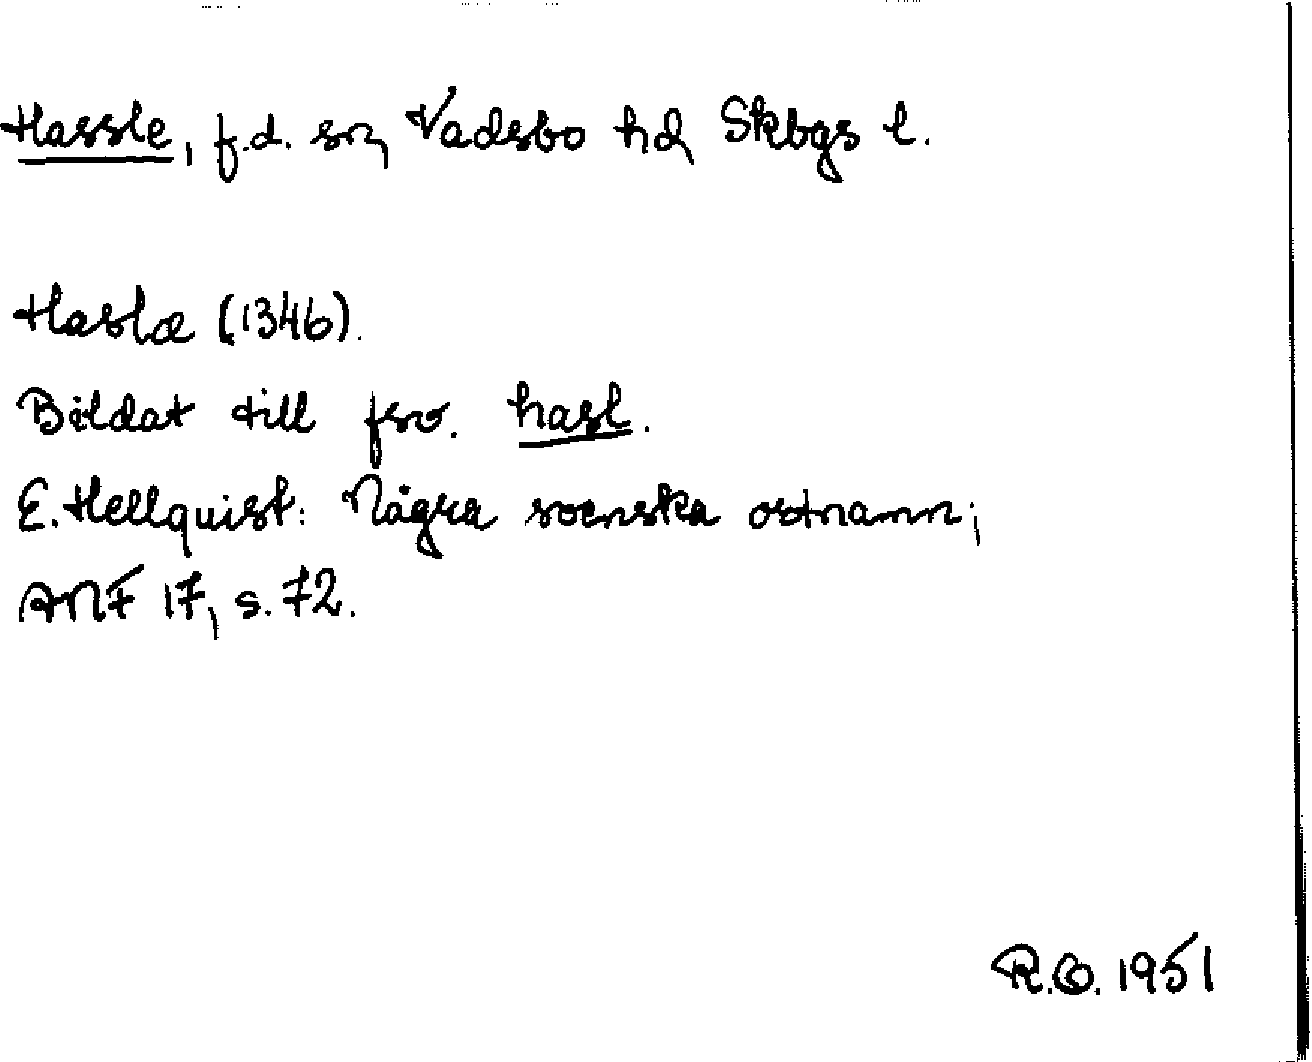 Hassle, f.d. sn, Vadsbo hd, Skbgs l.
Haslæ (1346).
Bildat till fsv. hasl.
E. Hellquist: Några svenska ortnamn;
ANF 17, s. 72.
R.O. 1951